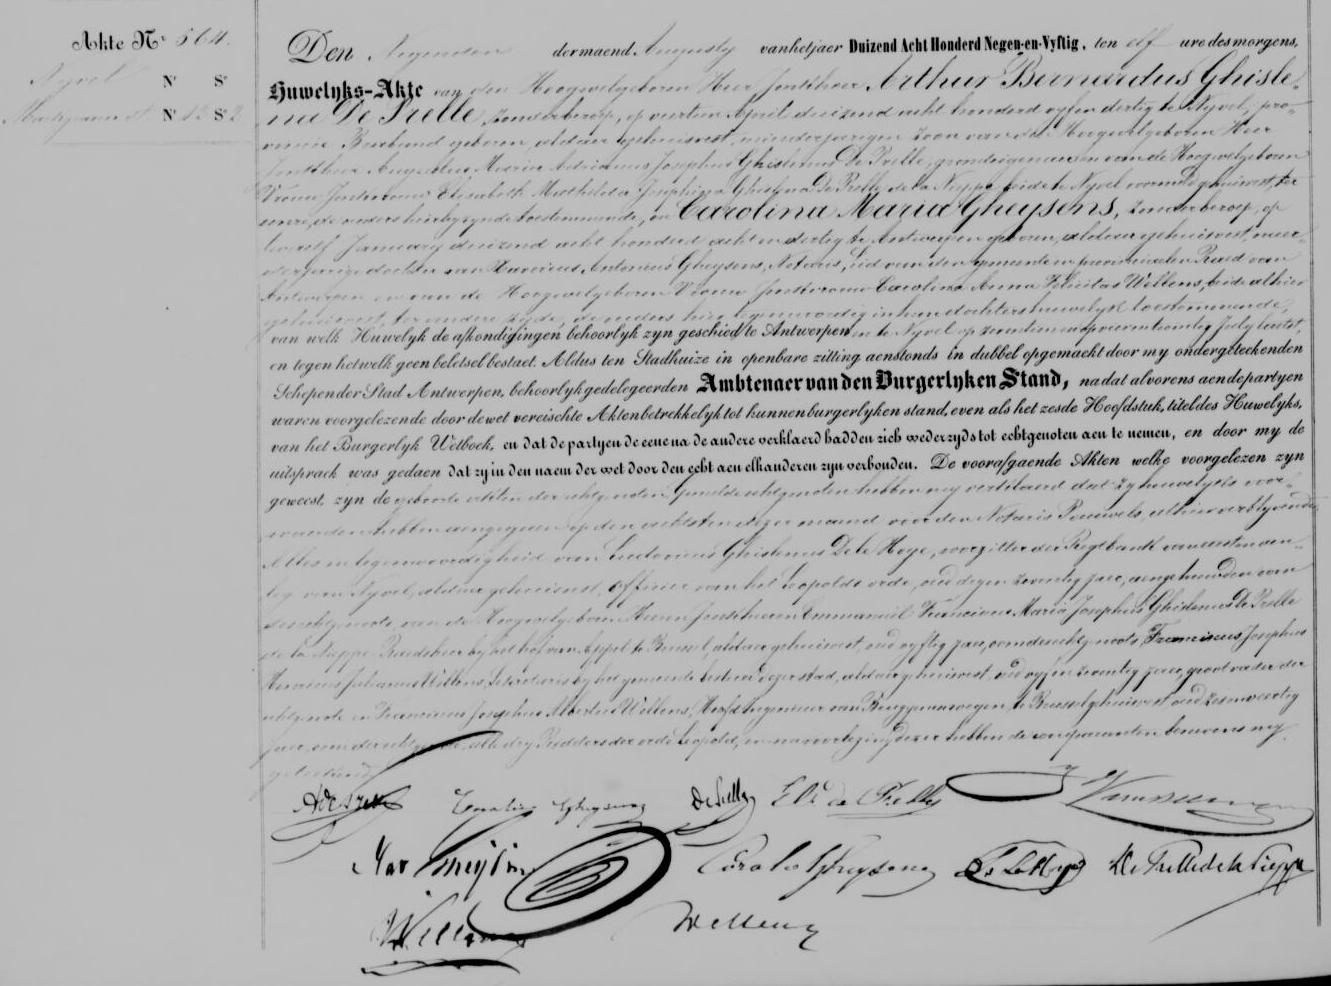 Akte Nr 564.
Nyvel Nr Sr
Nr 13 S 2
Den Negenden der maend Augusty van het jaer Duizend Acht Honderd Negen-en-Vyftig, ten elf ure des morgens,
Huwelyks-Akte van den Hoogwelgeboren Heer Jonkheer Arthur Bernardus Ghisle-
nus De Prelle, zonder beroep, op veertien April duizend acht honderd vyf en dertig te Nyvel, pro-
vincie Braband geboren aldaer gehuisvest, minderjarigen zoon van den Hoogwelgeboren Heer
Jonkheer Augustus Maria Adrianus Josephus Ghislenus De Prelle, grondeigenaer en van de Hoogwelgeboren
Vrouw Jonkvrouw Elisabeth Mathilda Josephina Ghislena De Prelle de la Nieppe, beide te Nyvel voormeld gehuisvest, ter
eenre, de ouders hier byzynde toestemmende, en Carolina Maria Gheysens, zonder beroep, op
twaelf January duizend acht honderd acht en dertig te Antwerpen geboren, aldaer gehuisvest, meer-
derjarige dochter van Xaverius Antonius Gheysens, Notaris, Lid van den gemeente en provincialen Raed van
Antwerpen en van de Hoogwelgeboren Vrouw Jonkvrouw Carolina Anna Felicitas Wellens, beide alhier
gehuisvest, ter andere zyde, de ouders hier tegenwoordig in hun dochters huwelyk toestemmende,
van welk Huwelyk de afkondigingen behoorlyk zyn geschied te Antwerpen en te Nyvel op zeventien en vierentwintig July laetst,
en tegen hetwelk geen beletsel bestaet. Aldus ten Stadhuize in openbare zitting aenstonds in dubbel opgemaekt door my ondergeteekenden
Schepen der Stad Antwerpen, behoorlyk gedelegeerden Ambtenaer van den Burgerlyken Stand, na dat alvorens aen de partyen
waren voorgelezende door de wet vereischte Akten betrekkelyk tot hunnen burgerlyken stand, even als het zesde Hoofdstuk, titel des Huwelyks,
van het Burgerlyk Wetboek, en dat de partyen de eene na de andere verklaerd hadden zich wederzyds tot echtgenoten aen te nemen, en door my de
uitspraek was gedaen dat zy in den naem der wet door den echt aen elkanderen zyn verbonden. De voorafgaende Akten welke voorgelezen zyn
geweest, zyn de geboorte akten der echtgenoten. Gemelde echtgenoten hebben my verklaerd dat zy huwelyks voor-
waerden hebben aengegaen op den achtsten dezer maend voor den Notaris Pauwels, alhier verblyvende
Alles in tegenwoordigheid van Ludovicus Ghislenus De le Hoye, voorzitter der Regtbank van eersten aen-
leg van Nyvel, aldaer gehuisvest, officier van het Leopolds orde, oud dryen zeventig jaer, aengetrouwden oom
des echtgenoots, van de Hoogwelgeboren Heeren Jonkheeren Emmanuel Franciscus Maria Josephus Ghislenus De Prelle
de la Nieppe Raedsheer by het hof van Appel te Brussel, aldaer gehuisvest, oud vyftig jaer, oom des echtgenoots, Franciscus Josephus
Henricus Johannes Wellens, Sekretaris by het gemeente bestuer dezer stad, aldaer gehuisvest, oud vyf en zeventig jaer, grootvader der
echtgenote en Franciscus Josephus Albertus Wellens, Hoofd Ingenieur van Bruggen en wegen, te Brussel gehuisvest oud zes en veertig
jaer, oom der echtgenote, alle dry Ridders der orde Leopold, en na voorlezing dezer hebben de comparanten benevens my
geteekend.
A de Prelle Caroline Gheysens de Prelle Eli de Prelle
Xav Gheysens Caroli Gheysens De Le Hoye De Prelle de la Nieppe
Wellens Wellens